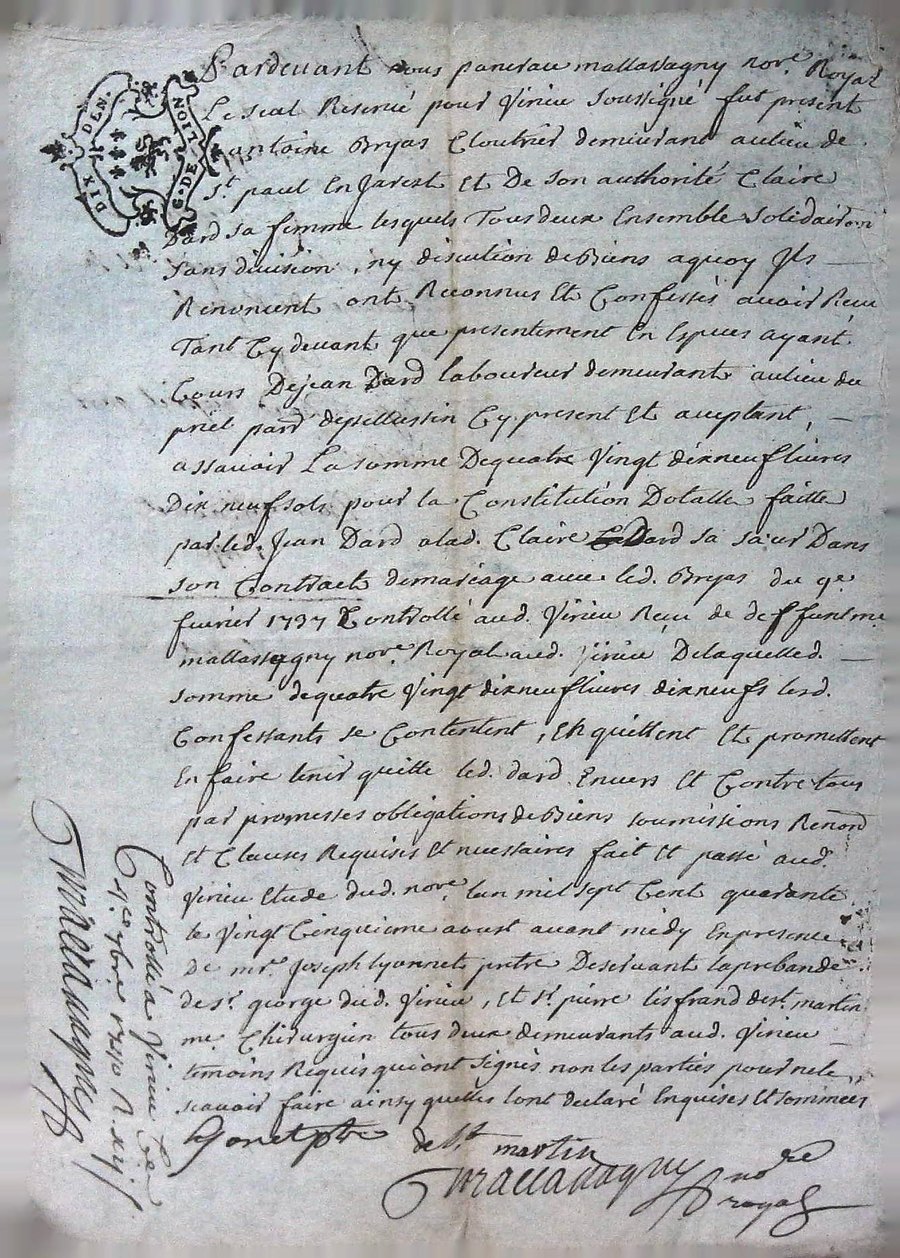 DIX DEN.
G. DE LION
Pardevant nous pancrace mallassagny nore. Royal
Le seul Reservé pour Virieu soussigné fut present
antoine Bryas Cloutrier demeurant au lieu de
st. paul En Jarest Et De Son authorité Claire
Dard sa femme lesquels Tous deux Ensemble Solidairemt
sans division, ny discution de Biens a quoy Ils
Renoncent ont Reconnus Et Confessés avoir Receu
Tant Cy devant que presentement En Especes ayant
Cours De jean Dard laboureur demeurant au lieu du
pard Cy present Et aceptant,
assavoir La somme De quatre Vingt dix neuf livres
Dix neuf sols pour la Constitution Dotalle faitte
par led. Jean Dard a lad. Claire Dard sa sœur Dans
son Contract de mariage avec led. Bryas du 9e
fevrier 1737 Controllé aud. Virieu Receu de deffunt me
mallassagny nore Royal aud. Virieu De laquelle d.
somme de quatre Vingt dix neuf livres dix neuf s lesd.
Confessants se Contentent, En quittent Et promettent
En faire tenir quitte led. dard Envers Et Contre tous
par promesses obligations de Biens soumissions Renond
Et Clauses Requises Et necessaires fait Et passé aud.
Virieu Etude dud. nore. lan mil sept Cent quarante
le Vingt Cinquieme aoust avant midy En presence
de mre. Joseph lyonnet pretre Deservant la prebande
de st. george dud. Virieu, Et sr. pierre lisfrand de st. martin
me Chirurgien tous deux demeurants aud. Virieu
temoins Requis qui ont signés non les parties pour ne le
scavoir faire ainsy quelles lont declaré Enquises Et sommées
Lyonet ptre
de st martin
mallassagny nore
royal
Controllé a Virieu Le
7bre 1740 R xij s
mallassagny